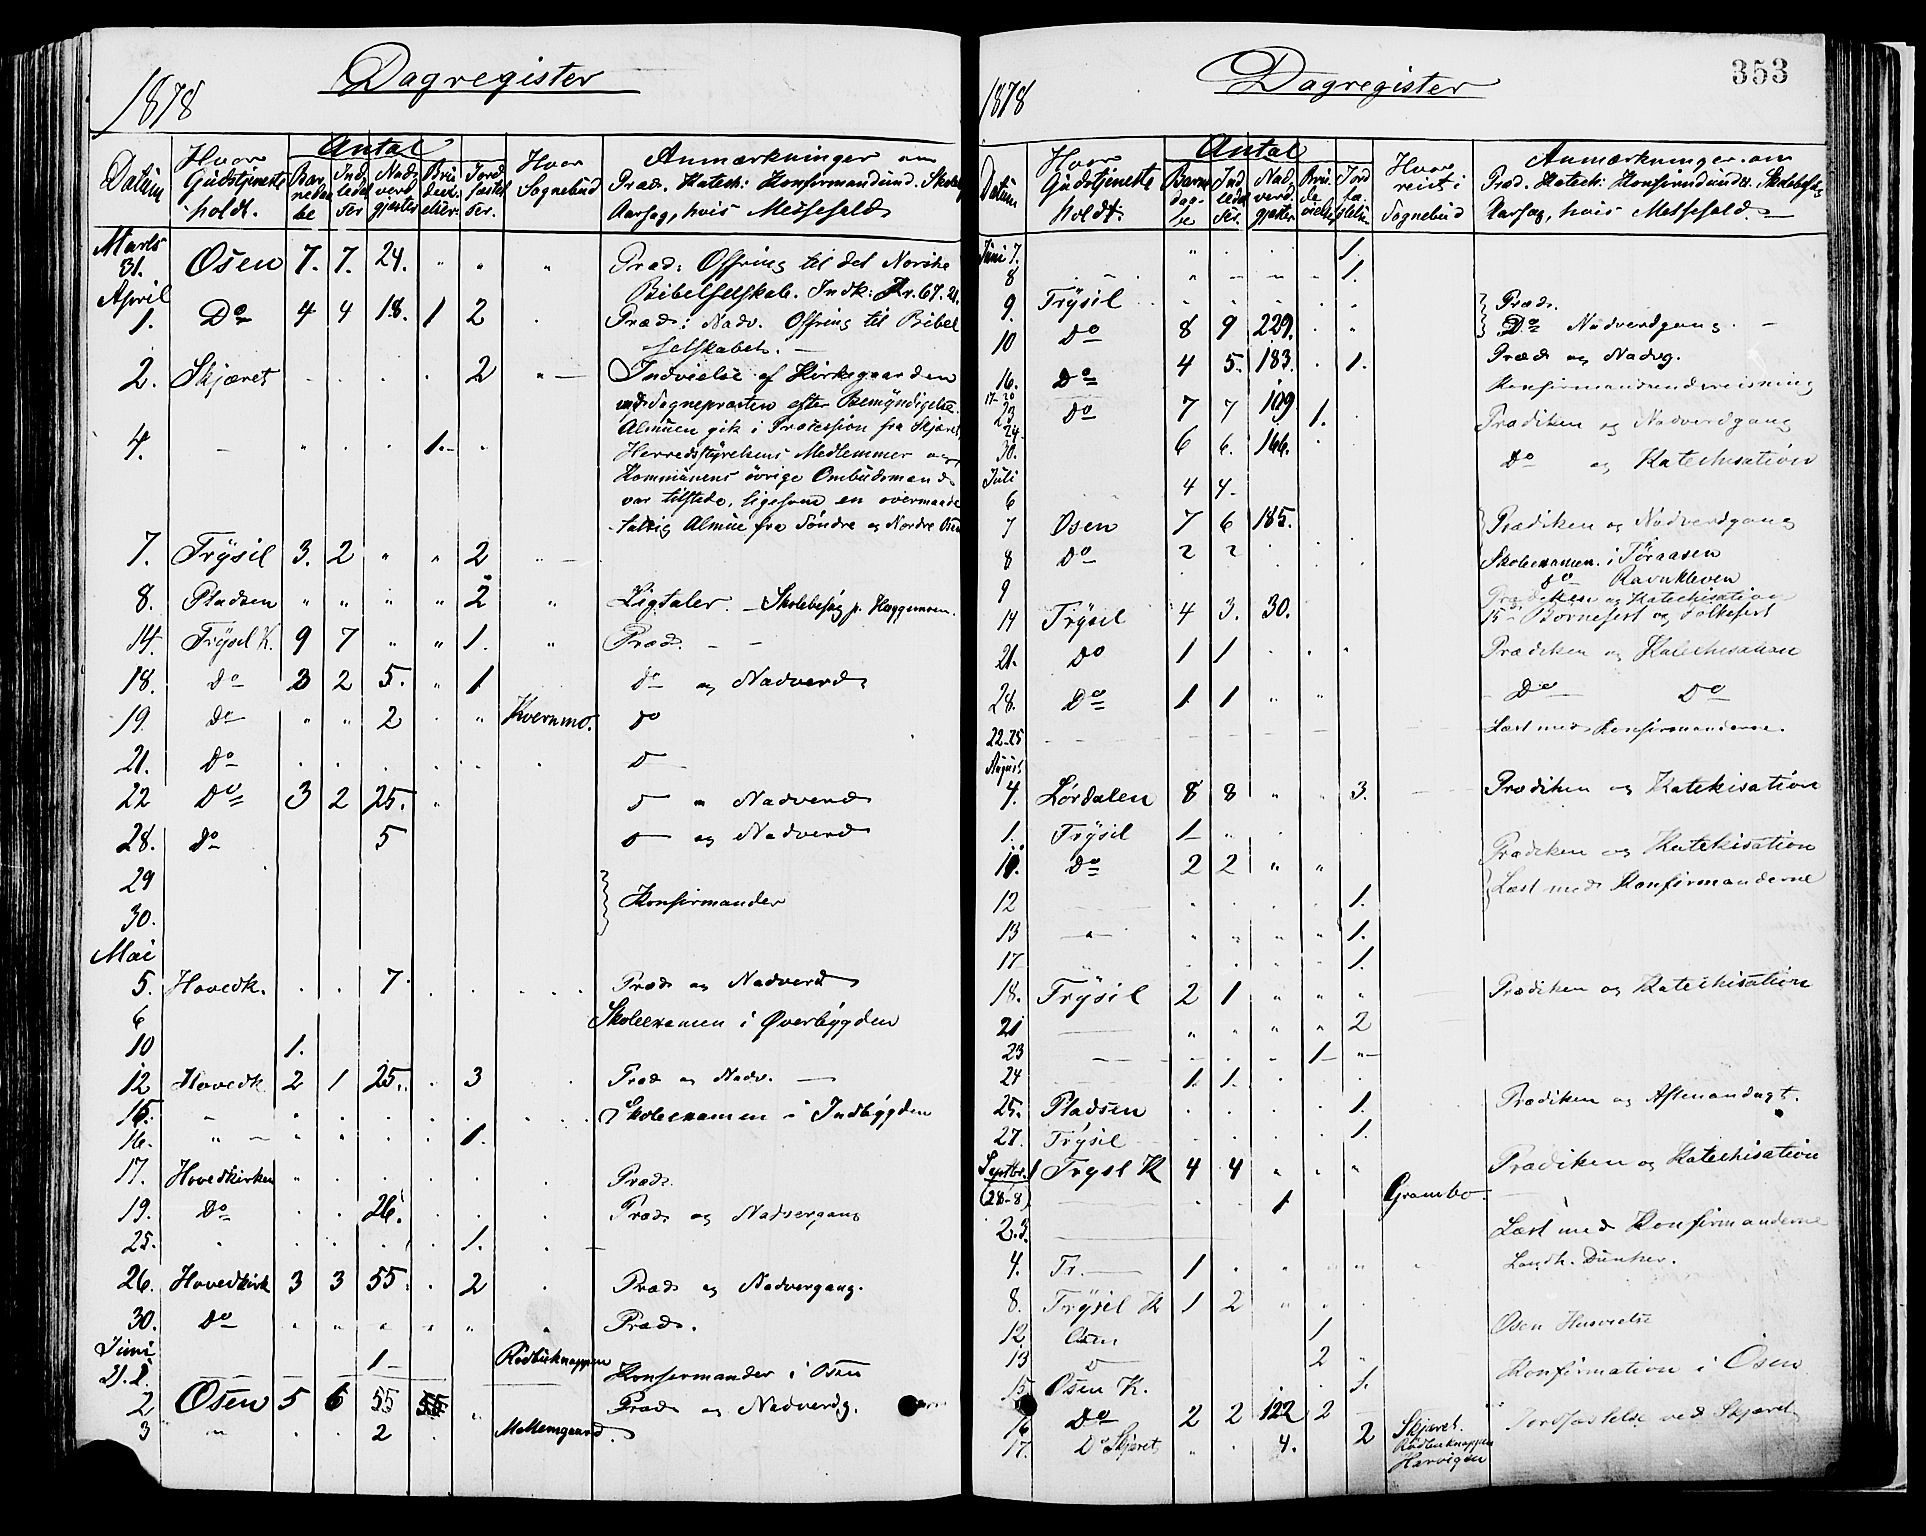 1878 Dagregister
Datum Hvor Gudstjeneste holdt. Antal Barnedaabe Indledelser Nadverdgjester Brudevielser Jordfæstelser. Hvor Sognebud Anmærkninger om Præd. Katech: Konfirmandund. Skolebesøg Aarsag, hvis Messefald
Marts
31. Osen 7. 7. 24. " " " Præd: Offring til det Norske
Bibelselskab. Indk: Kr. 67.21.
April
1. Do 4 4 18. 1 2 Præd: Nadv. Offring til Bibel
selskabet. —
2. Skjæret 2 " Indvielse af Kirkegaarden
ved Sognepræsten efter Bemyndigelse.
Almuen gik i Procession fra Skjæret,
4. 1. Herredstyrelsens Medlemmer og
Kommunens övrige Ombudsmænd
var tilstede, ligesom en overmaade
talrig Almue fra Söndre og Nordre Osen
7. Trysil 3. 2 " " 2
8. Pladsen " " " " 2 " Ligtaler. — Skolebesøg p. Haggunsen.
14. Trysil K. 9 7 " " 1. " Præd. — —
18. Do 3 2 5. " 1 do og Nadverd
19. Do " " 2 " Kvernmo. do
21. Do
22 Do 3 2 25. " " Nadverd
28. do 5 og Nadverd
29
30. Konfirmander
Mai
5. Hovedk. 7. Præd og Nadverd
6 Skoleexamen i Øverbygden
10 1.
12 Hovedk 2 1 25. 3 Præd og Nadv. —
15. Skoleexamen i Indbygden
16. 1.
17. Hovedkirken Præd.
19. Do 26. Præd og Nadvergang
25. 1.
26. Hovedkirk 3 3 55 2 Præd og Nadvergang.
30. Do Præd.
Juni
31. 1. 1 Rödbieknappen Konfirmander i Osen
2 Osen 5 6 55 Præd og Nadverdg.
3 2
1878 Dagregister 353
Datum Hvor Gudstjeneste holdt. Antal Hvor reist i Sognebud Anmærkninger om Præd. Katech: Konfirmdundv. Skolebesøg Aarsag, hvis Messefald. —
Juni 7. 1.
8 1.
9. Trysil Præd.
10 Do 8 9 229. Do Nadverdgang. —
16. Do 4 5. 183. 1. Præd og Nadvg.
17-20 Konfirmandundervisning
23 Do 7 7 109 1. Prædiken og Nadverdgang
24.
30. 6 6. 166. Do og Katechisation
Juli
6 4 4.
7 Osen 7 6 185. Prædiken og Nadverdgang
8 Do 2 2 Skoleexamen. i Töraasen
9 do Ravnkleven
14 Trysil 4 3. 30. Prædiken og Katechisation
15 Börnefest og Folkefest
21. Do 1 1 Prædiken og Katechisation
28. Do 1 1 Do Do
22-25 Læst med Konfirmanderne.
August
4. Lørdalen 8 8 3. Prædiken og Katekisation
1. Trysil 1
11. Do 2 2 Prædiken og Katekisation
12 1. Læst med Konfirmanderne
13 1.
17 1.
18. Trysil 2 1 Prædiken og Katechisation
21 2
23 1
24 1. 1.
25. Pladsen 1. Prædiken og Aftenandagt.
27. Trysil 1.
Septbr. 1 Trysl K 4 4 Prædiken og Katechisation
(28-8) 1 Grambo.
2.3. Læst med Konfirmanderne
4. Tr. 1 Landh. Dunker.
8. Trysil K 1 2
12 Osen 1 Osen
13 2
15 Osen K. 1. Konfirmation i Osen
16 Do 2 2 122 2
17. Do Skjæret 4. 2 Skjæret. Rödbieknappen Jordfæstelse ved Skjæret